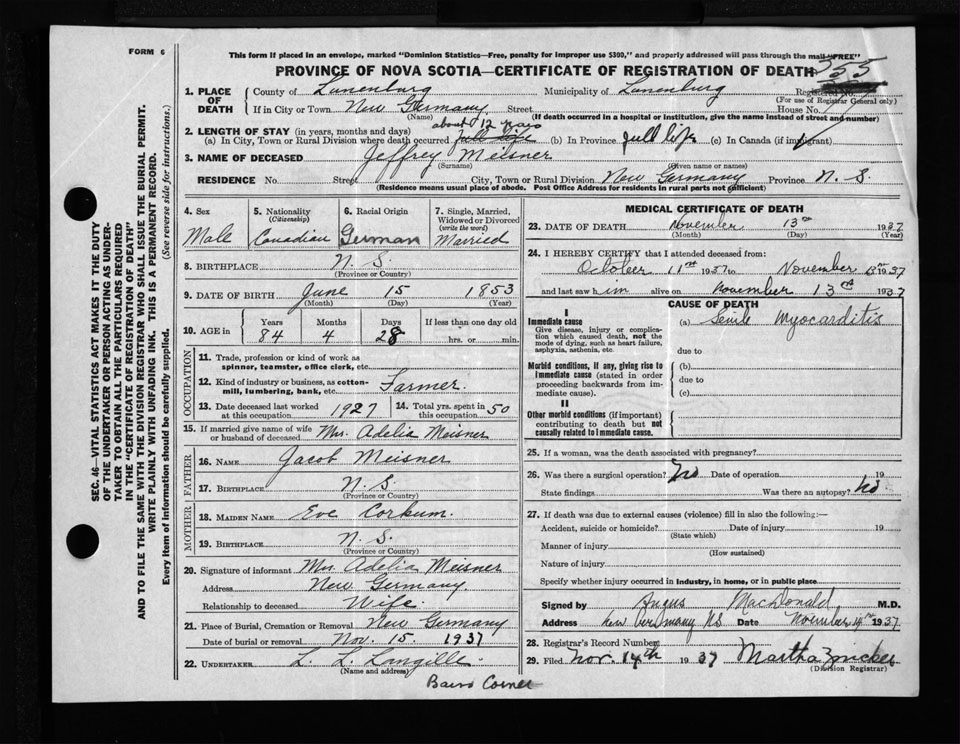 FORM 6
This form if placed in an envelope, marked "Dominion Statistics—Free, penalty for improper use $300," and properly addressed will pass through the mail "FREE"
PROVINCE OF NOVA SCOTIA—CERTIFICATE OF REGISTRATION OF DEATH
355
1. PLACE OF DEATH
County of Lunenburg Municipality of Lunenburg Registered No.
(For use of Registrar General only)
If in City or Town New Germany Street House No.
(Name) (If death occurred in a hospital or institution, give the name instead of street and number)
2. LENGTH OF STAY (in years, months and days) about 12 years
(a) In City, Town or Rural Division where death occurred full life (b) In Province full life (c) In Canada (if immigrant)
3. NAME OF DECEASED Jeffrey Meisner
(Surname) (Given name or names)
RESIDENCE No. Street City, Town or Rural Division New Germany Province N. S.
(Residence means usual place of abode. Post Office Address for residents in rural parts not sufficient)
4. Sex Male
5. Nationality (Citizenship) Canadian
6. Racial Origin German
7. Single, Married, Widowed or Divorced (write the word) Married
8. BIRTHPLACE N. S.
(Province or Country)
9. DATE OF BIRTH June 15 1853
(Month) (Day) (Year)
10. AGE in Years Months Days If less than one day old
84 4 28 hrs. or min.
OCCUPATION
11. Trade, profession or kind of work as spinner, teamster, office clerk, etc.
12. Kind of industry or business, as cotton-mill, lumbering, bank, etc. Farmer.
13. Date deceased last worked at this occupation 1927
14. Total yrs. spent in this occupation 50
15. If married give name of wife or husband of deceased Mrs. Adelia Meisner
FATHER
16. NAME Jacob Meisner
17. BIRTHPLACE N. S.
(Province or Country)
MOTHER
18. MAIDEN NAME Eve Corkum.
19. BIRTHPLACE N. S.
(Province or Country)
20. Signature of informant Mrs Adelia Meisner
Address New Germany.
Relationship to deceased Wife.
21. Place of Burial, Cremation or Removal New Germany
Date of burial or removal Nov. 15. 1937
22. UNDERTAKER L. L. Langille
(Name and address)
MEDICAL CERTIFICATE OF DEATH
23. DATE OF DEATH November 13 1937
(Month) (Day) (Year)
24. I HEREBY CERTIFY that I attended deceased from:
October 11th 1937 to November 13 1937
and last saw him alive on November 13rd 1937
CAUSE OF DEATH
I
Immediate cause
Give disease, injury or complication which caused death, not the mode of dying, such as heart failure, asphyxia, asthenia, etc.
(a) Senile Myocarditis
due to
Morbid conditions, if any, giving rise to immediate cause (stated in order proceeding backwards from immediate cause).
(b)
due to
(c)
II
Other morbid conditions (if important) contributing to death but not causally related to immediate cause.
25. If a woman, was the death associated with pregnancy?
26. Was there a surgical operation? No Date of operation 19
State findings Was there an autopsy? No
27. If death was due to external causes (violence) fill in also the following:—
Accident, suicide or homicide? Date of injury 19
(State which)
Manner of injury
(How sustained)
Nature of injury
Specify whether injury occurred in industry, in home, or in public place
Signed by Angus MacDonald M.D.
Address New Germany N.S. Date November 14th 1937
28. Registrar's Record Number
29. Filed Nov. 14th 1937 Martha
(Division Registrar)
SEC. 46—VITAL STATISTICS ACT MAKES IT THE DUTY
OF THE UNDERTAKER OR PERSON ACTING AS UNDER-
TAKER TO OBTAIN ALL THE PARTICULARS REQUIRED
IN THE "CERTIFICATE OF REGISTRATION OF DEATH"
AND TO FILE THE SAME WITH THE DIVISION REGISTRAR WHO SHALL ISSUE THE BURIAL PERMIT.
WRITE PLAINLY WITH UNFADING INK. THIS IS A PERMANENT RECORD.
Every item of information should be carefully supplied. (See reverse side for instructions.)